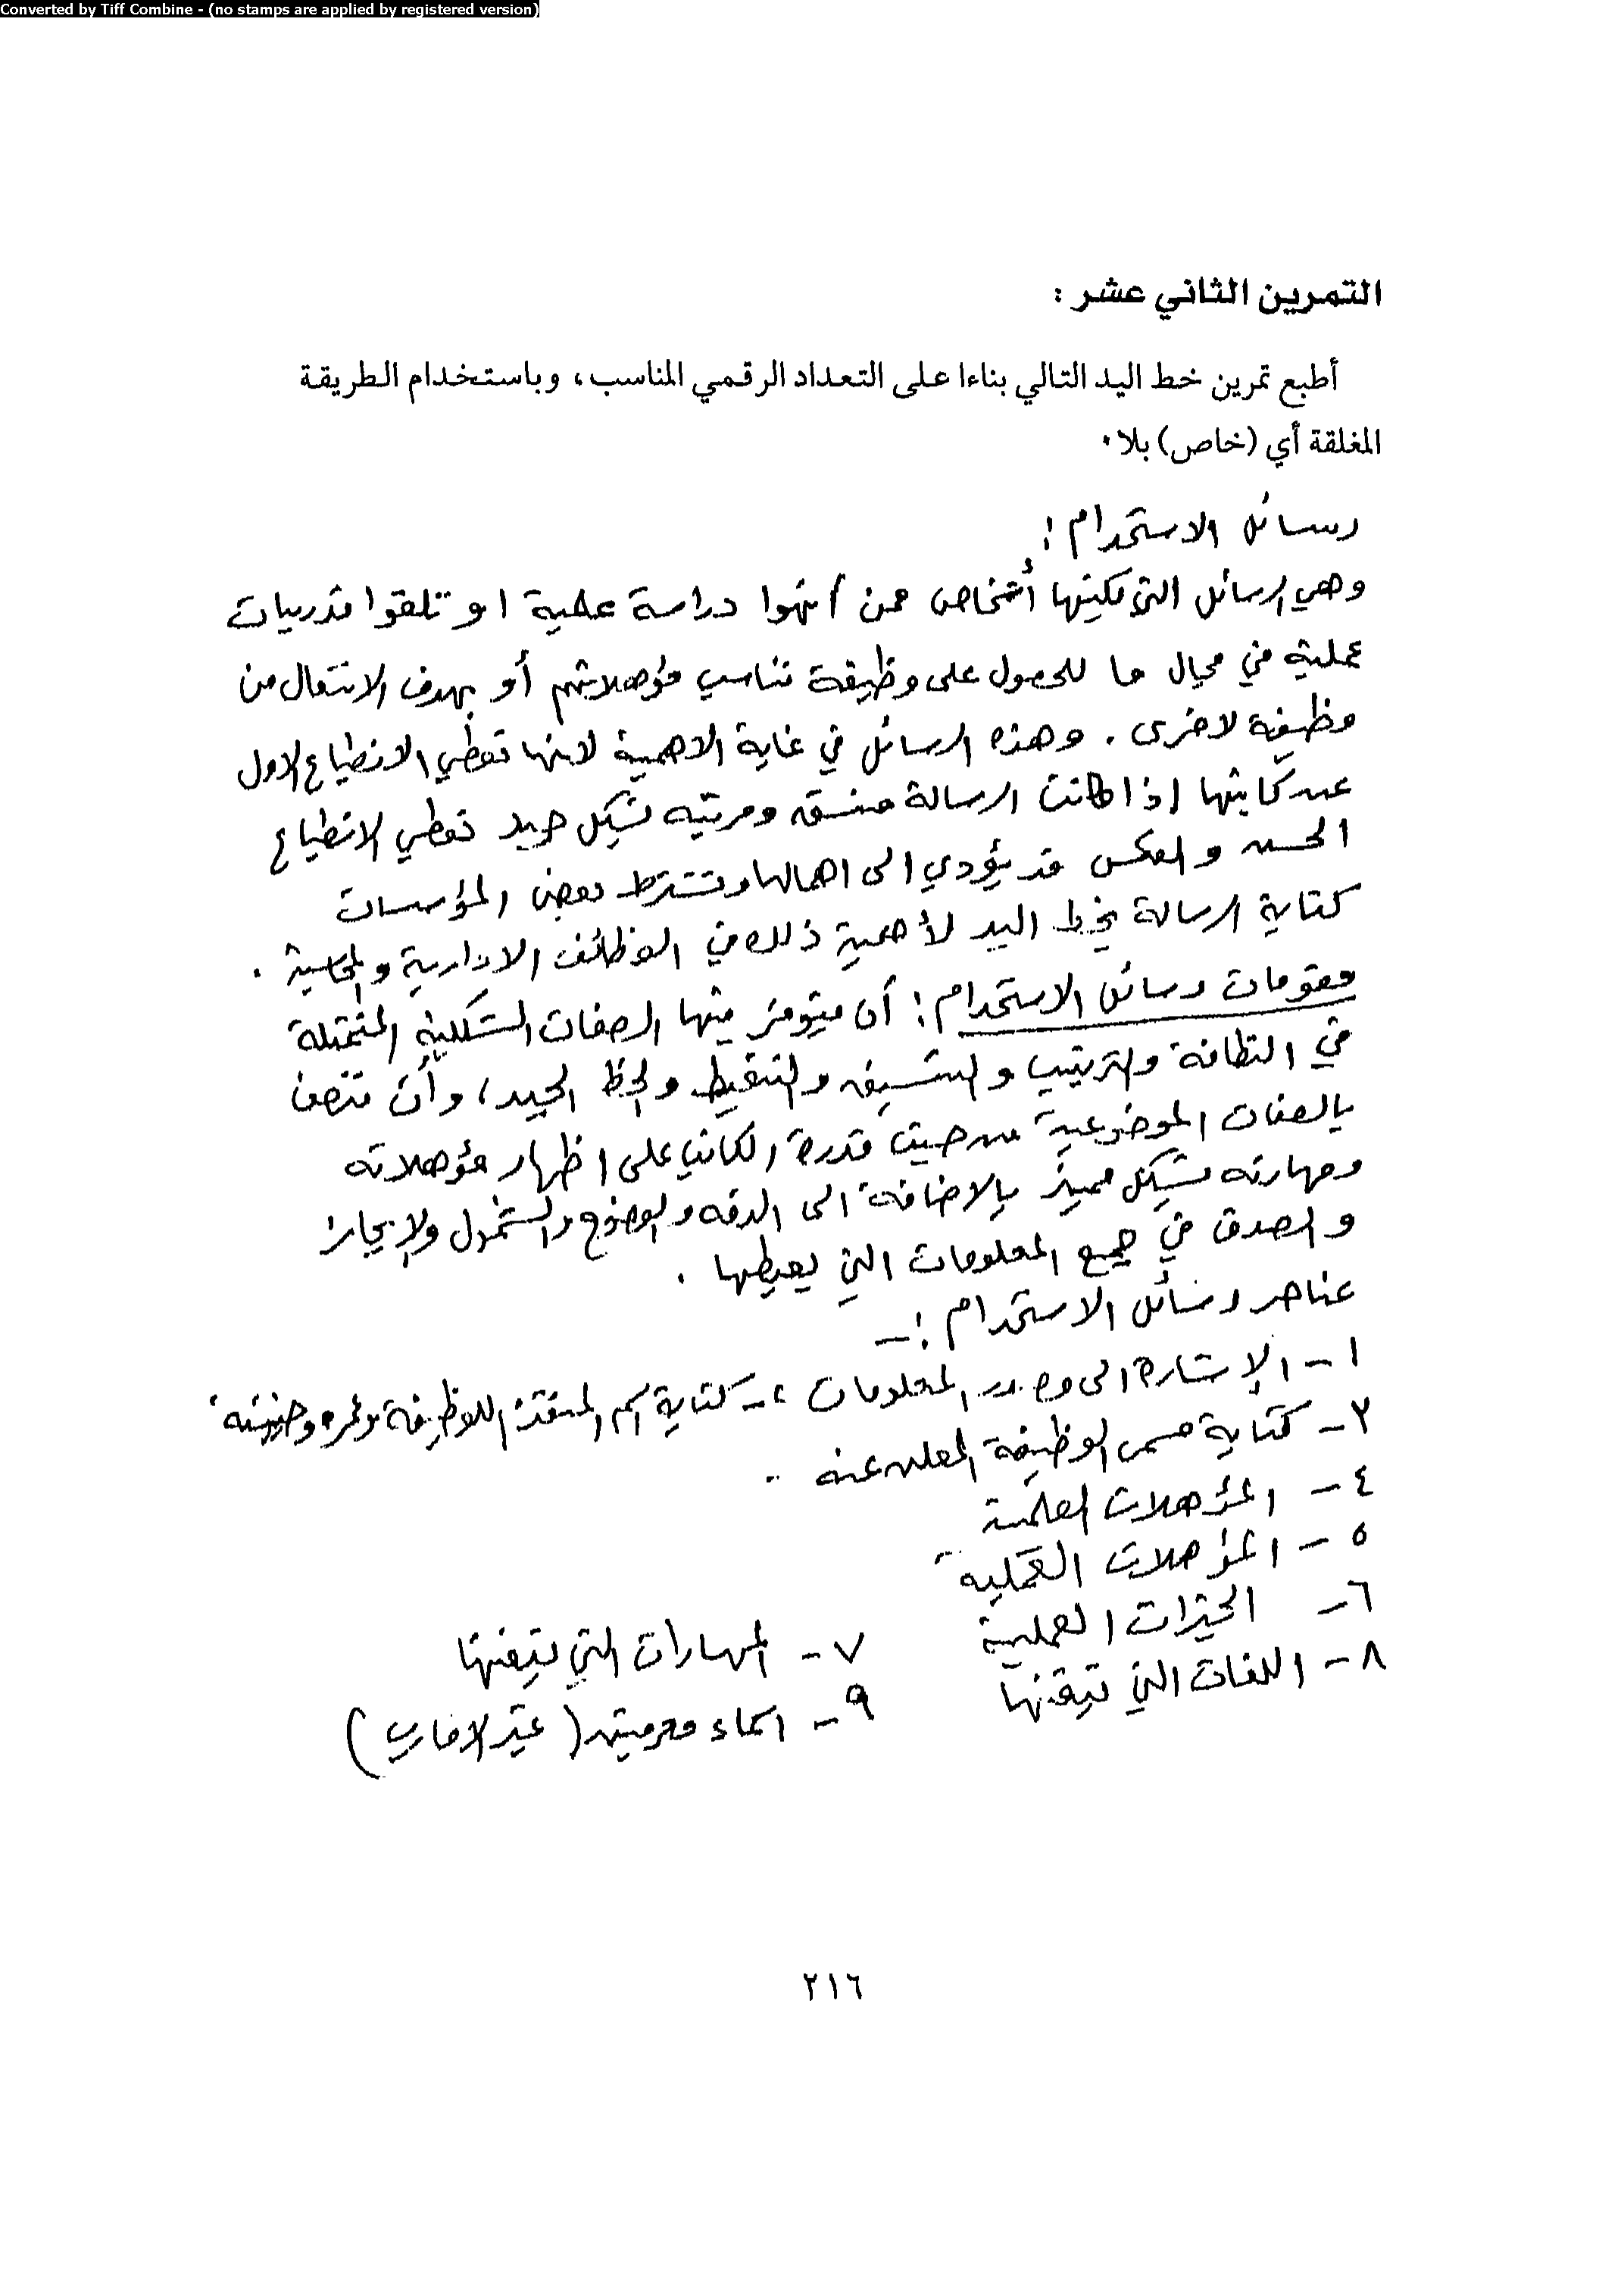 Converted by Tiff Combine - (no stamps are applied by registered version)
التمرين الثاني عشر :
أطبع تمرين خط اليد التالي بناءا على التعداد الرقمي المناسب، وباستخدام الطريقة
المغلقة أي (خاص) بلا ٠
رسائل الاستخدام :
وهي الرسائل التي يكتبها أشخاص ممن أنهوا دراسة علمية او تلقوا تدريبات
عملية في مجال ما للحصول على وظيفة تناسب مؤهلاتهم أو بهدف الانتقال من
وظيفة لاخرى . وهذه الرسائل في غاية الاهمية لانها تعطي الانطباع الاول
عن كاتبها اذا كانت الرسالة منسقه ومرتبه بشكل جيد تعطي الانطباع
الحسن والعكس قد يؤدي الى اهمالها وتشترط بعض المؤسسات
كتابة الرسالة بخط اليد لأهمية ذلك في الوظائف الادارية والمحاسبية .
مقومات رسائل الاستخدام : أن يتوفر فيها الصفات الشكلية المتمثلة
في النظافة والترتيب والتنسيق والتنقيط والخط الجيد، وأن تتصف
بالصفات الموضوعية من حيث قدرة الكاتب على اظهار مؤهلاته
ومهارته بشكل مميز بالاضافة الى الدقه والوضوح والشمول والايجاز
والصدق في جميع المعلومات التي يعطيها .
عناصر رسائل الاستخدام :-
١ - الإشارة الى مصدر المعلومات ٢- كتابة اسم المتقدم للوظيفة وعمره وجنسيته
٣ - كتابة مسمى الوظيفة المعلن عنه ..
٤ - المؤهلات العلمية
٥ - المؤهلات العملية
٦ - الخبرات العملية ٧ - المهارات التي يتقنها
٨ - اللغات التي يتقنها ٩ - اسماء معرفين (غير الاقارب)
٢١٦